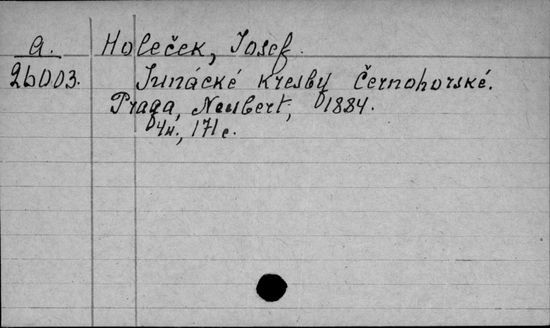 a. Holeček, Josef.
26003. Junácké kresby Černohorské.
Praga, Neubert, 1884.
4н., 171с.